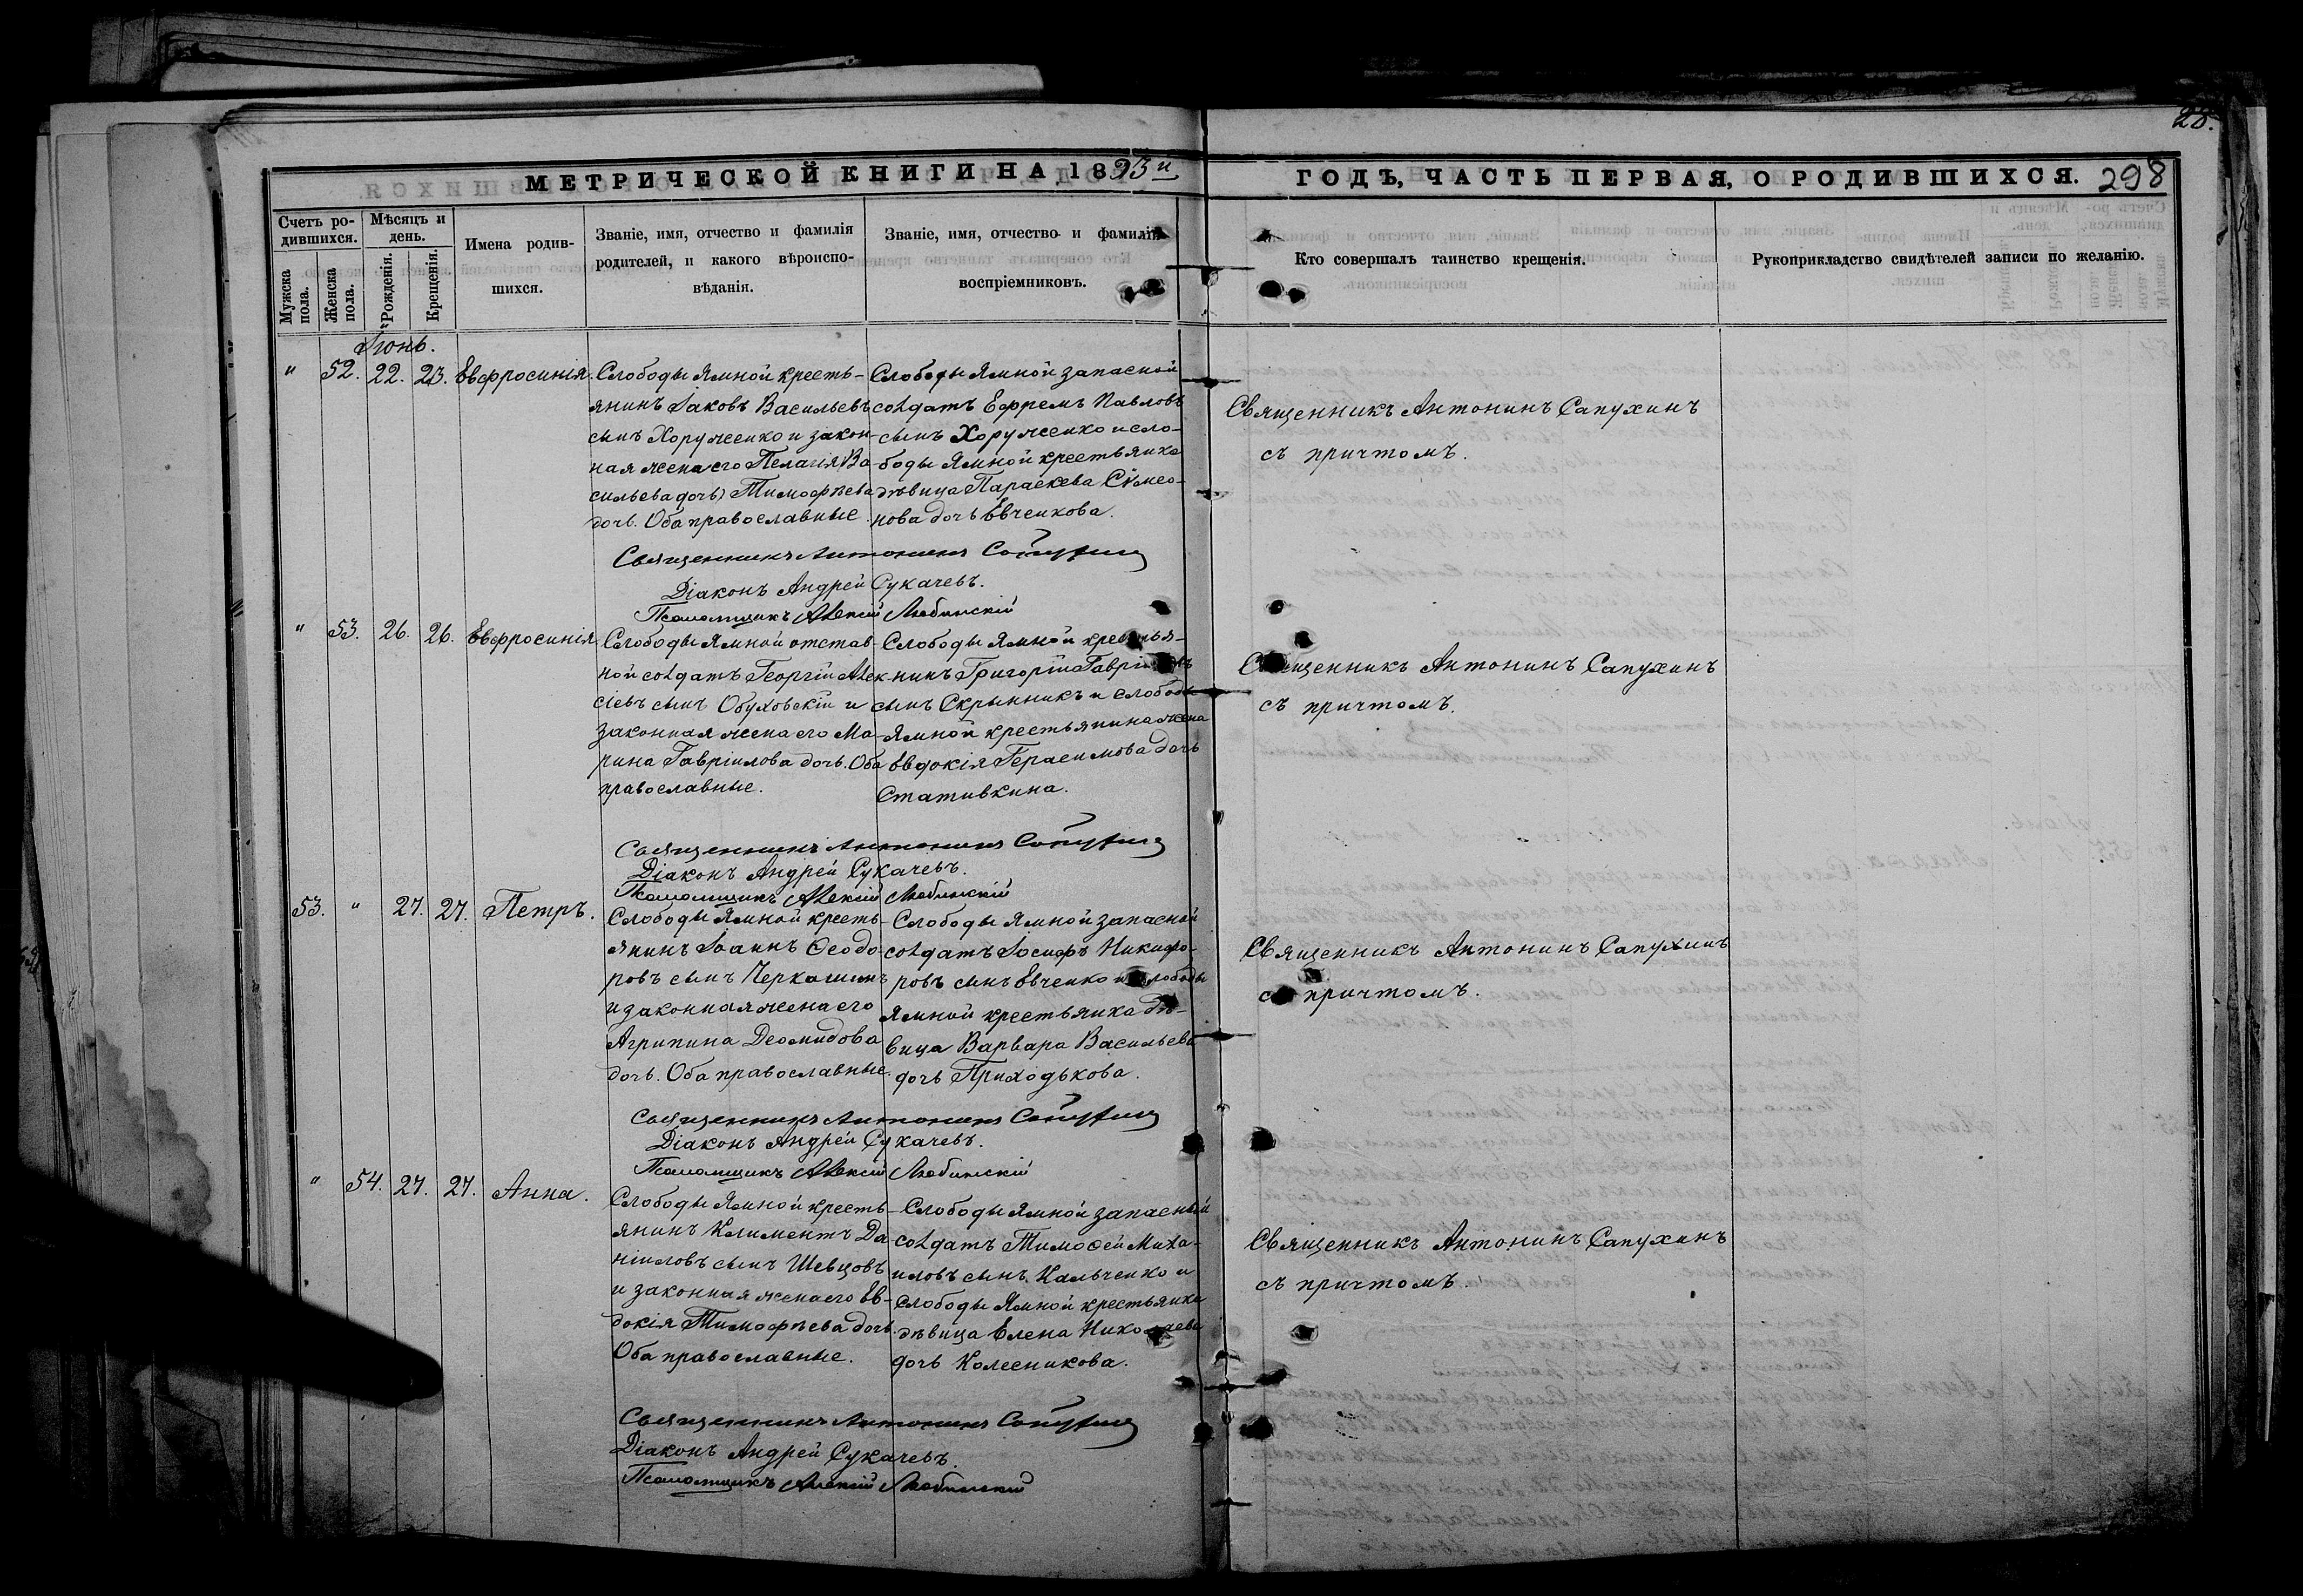 28.
МЕТРИЧЕСКОЙ КНИГИ НА 1893й ГОДЪ, ЧАСТЬ ПЕРВАЯ, О РОДИВШИХСЯ. 298
Счетъ ро-
дившихся.
Мужска
пола.
Женска
пола.
Мѣсяцъ и
день.
Рожденія.
Крещенія.
Имена родив-
шихся.
Званіе, имя, отчество и фамилія
родителей, и какого вѣроиспо-
вѣданія.
Званіе, имя, отчество и фамилія
воспріемниковъ.
Кто совершалъ таинство крещенія.
Рукоприкладство свидѣтелей записи по желанію.
Іюнь.
" 52. 22. 23. Евфросинія.
Слободы Ямной кресть-
янинъ Іаковъ Васильевъ
сынъ Хоруженко и закон-
ная жена его Пелагія Ва-
сильева дочь) Тимофѣева
дочь. Оба православные.
Слободы Ямной запасной
солдатъ Ефремъ Павловъ
сынъ Хоруженко и сло-
боды Ямной крестьянка
дѣвица Параскева Сѵмео-
нова дочь Евченкова.
Священникъ Антонинъ Сапухинъ
съ причтомъ.
Священникъ Антонинъ Сапухинъ
Діаконъ Андрей Сукачевъ.
Псаломщикъ Алексій Любинскій
" 53. 26. 26. Евфросинія
Слободы Ямной отстав-
ной солдатъ Георгій Алек-
сіевъ сынъ Обуховскій и
законная жена его Ма-
рина Гавріилова дочь. Оба
православные.
Слободы Ямной крестья-
нинъ Григорій Гавріиловъ
сынъ Скрынникъ и слободы
Ямной крестьянина жена
Евдокія Герасимова дочь
Стативкина.
Священникъ Антонинъ Сапухинъ
съ причтомъ.
Священникъ Антонинъ Сапухинъ
Діаконъ Андрей Сукачевъ.
Псаломщикъ Алексій Любинскій
53. " 27. 27. Петръ.
Слободы Ямной кресть-
янинъ Іоаннъ Ѳеодо-
ровъ сынъ Черкашинъ
и законная жена его
Агрипина Деомидова
дочь. Оба православные.
Слободы Ямной запасной
солдатъ Іосифъ Никифо-
ровъ сынъ Евченко и слободы
Ямной крестьянка дѣ-
вица Варвара Васильева
дочь Приходькова.
Священникъ Антонинъ Сапухинъ
съ причтомъ.
Священникъ Антонинъ Сапухинъ
Діаконъ Андрей Сукачевъ.
Псаломщикъ Алексій Любинскій
" 54. 27. 27. Анна.
Слободы Ямной кресть-
янинъ Климентъ Да-
ніиловъ сынъ Шевцовъ
и законная жена его Ев-
докія Тимофѣева дочь.
Оба православные.
Слободы Ямной запасный
солдатъ Тимоѳей Миха-
иловъ сынъ Кальченко и
слободы Ямной крестьянка
дѣвица Елена Николаева
дочь Колесникова.
Священникъ Антонинъ Сапухинъ
съ причтомъ.
Священникъ Антонинъ Сапухинъ
Діаконъ Андрей Сукачевъ.
Псаломщикъ Алексій Любинскій